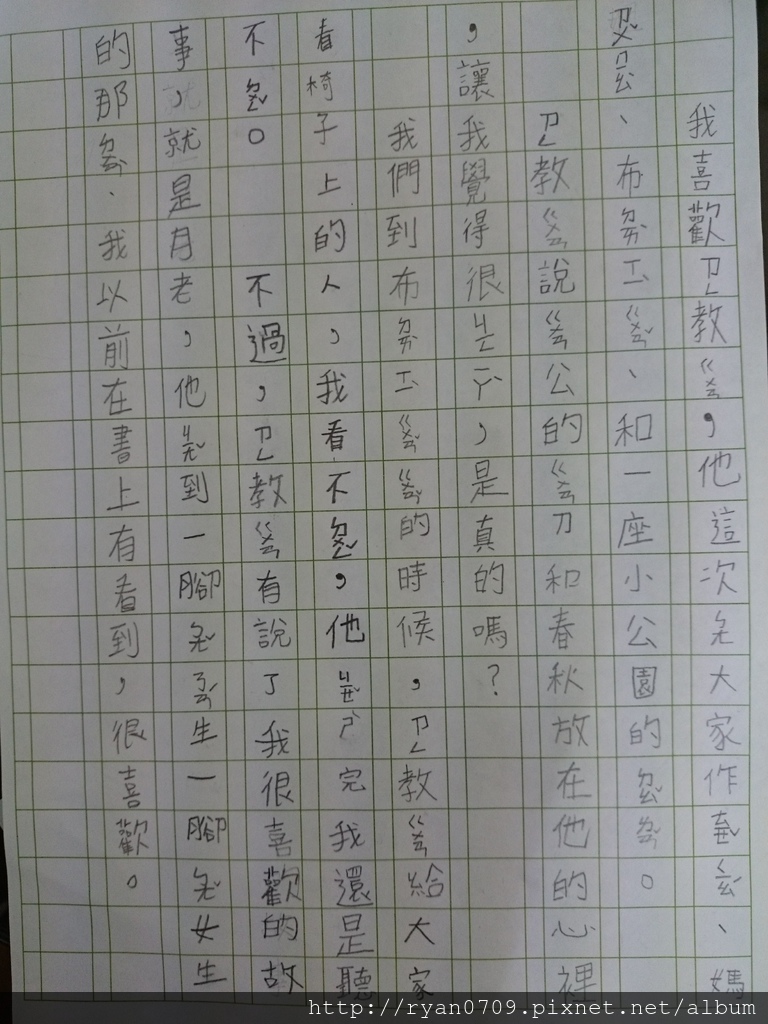 我喜歡ㄗㄥ教ㄍㄨㄢ，他這次大家作、媽
ㄗㄨˇㄇㄧㄠ、布ㄉㄞㄒㄧˋㄍㄨㄢˇ、和一座小公園的ㄈㄤ。
ㄗㄥ教ㄍㄨㄢ說ㄍㄨㄢ公的ㄍㄨㄢ刀和春秋放在他的心裡
，讓我覺得很ㄐㄧㄥㄧㄚˋ，是真的嗎？
我們到布ㄉㄞㄒㄧˋㄍㄨㄢˇ的時候，ㄗㄥ教ㄍㄨㄢ給大家
看椅子上的人，我看不ㄉㄨㄥˇ，他ㄐㄧㄝˇㄕˋ完我還是聽
不ㄉㄨㄥˇ。不過，ㄗㄥ教ㄍㄨㄢ有說了我很喜歡的故
事，就是月老，他到一腳生一腳女生
的那、我以前在書上有看到，很喜歡。
http://ryan0709.pixnet.net/album